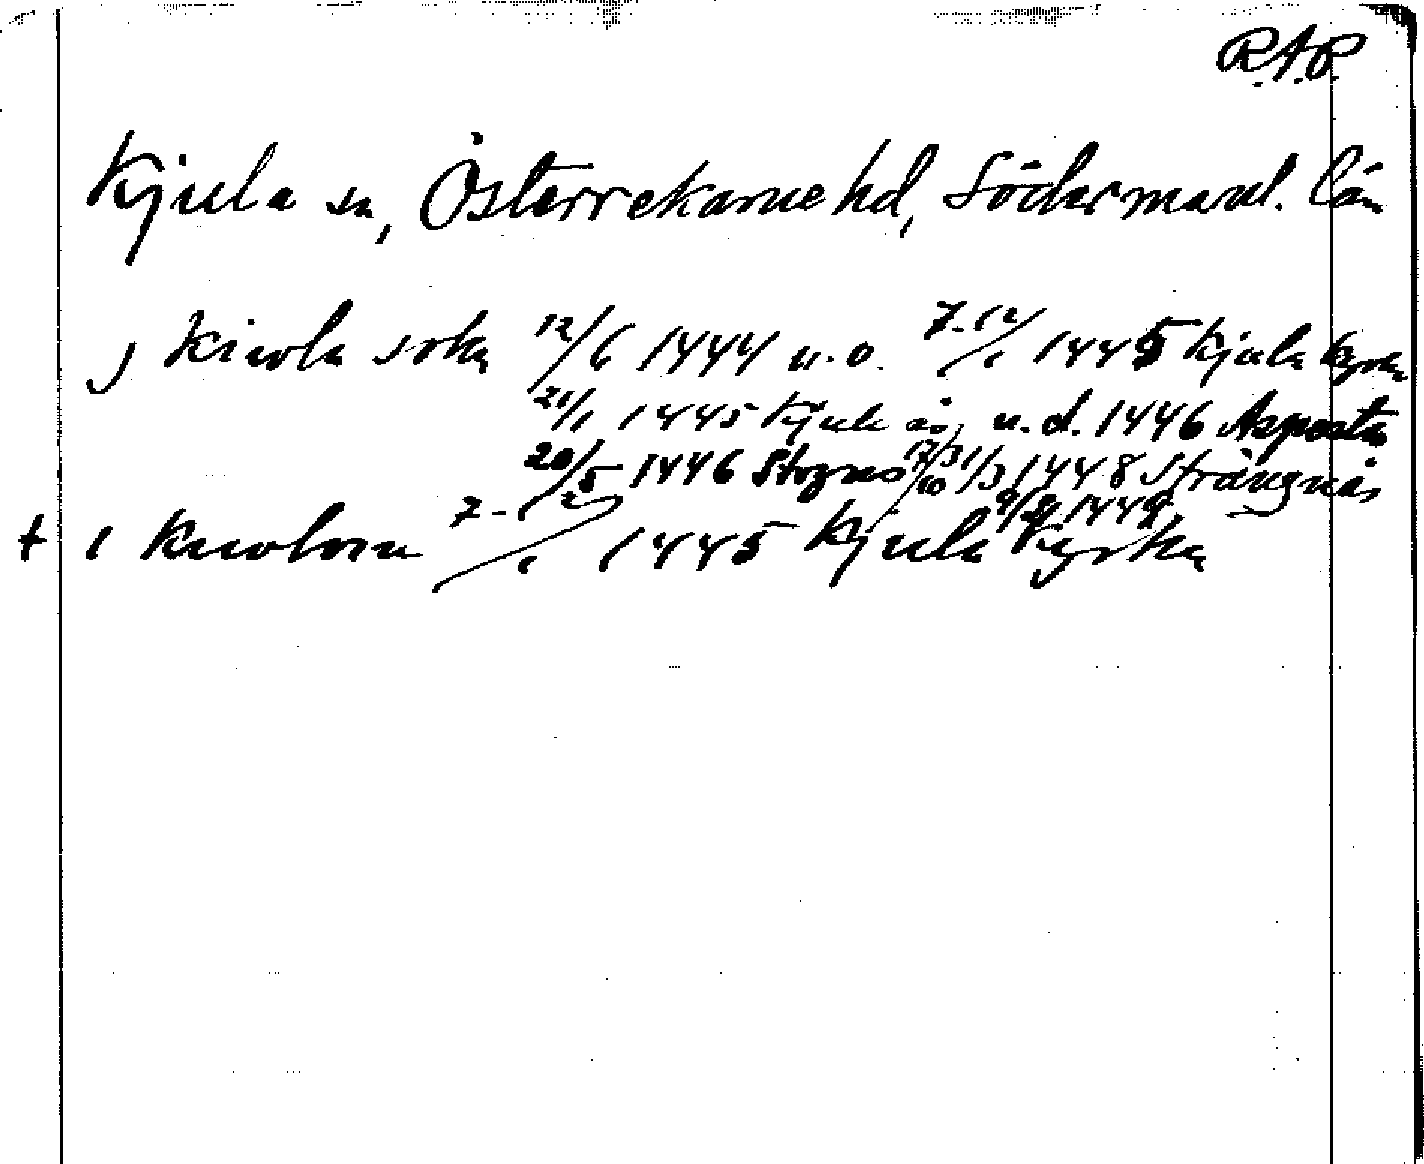 R.A.P.
Kjula sn, Österrekarne hd, Södermanl. län
j Kiwla sokn 12/6 1444 u.o. 7-12/1 1445 Kjula kyrka
21/1 1445 Kjula sn, u.d. 1446 Asposta
20/5 1446 Stregnæs 17/10 31/3 1448 Strängnäs
1449
+ i Kiwlosn 7-12/1 1445 Kjula kyrka